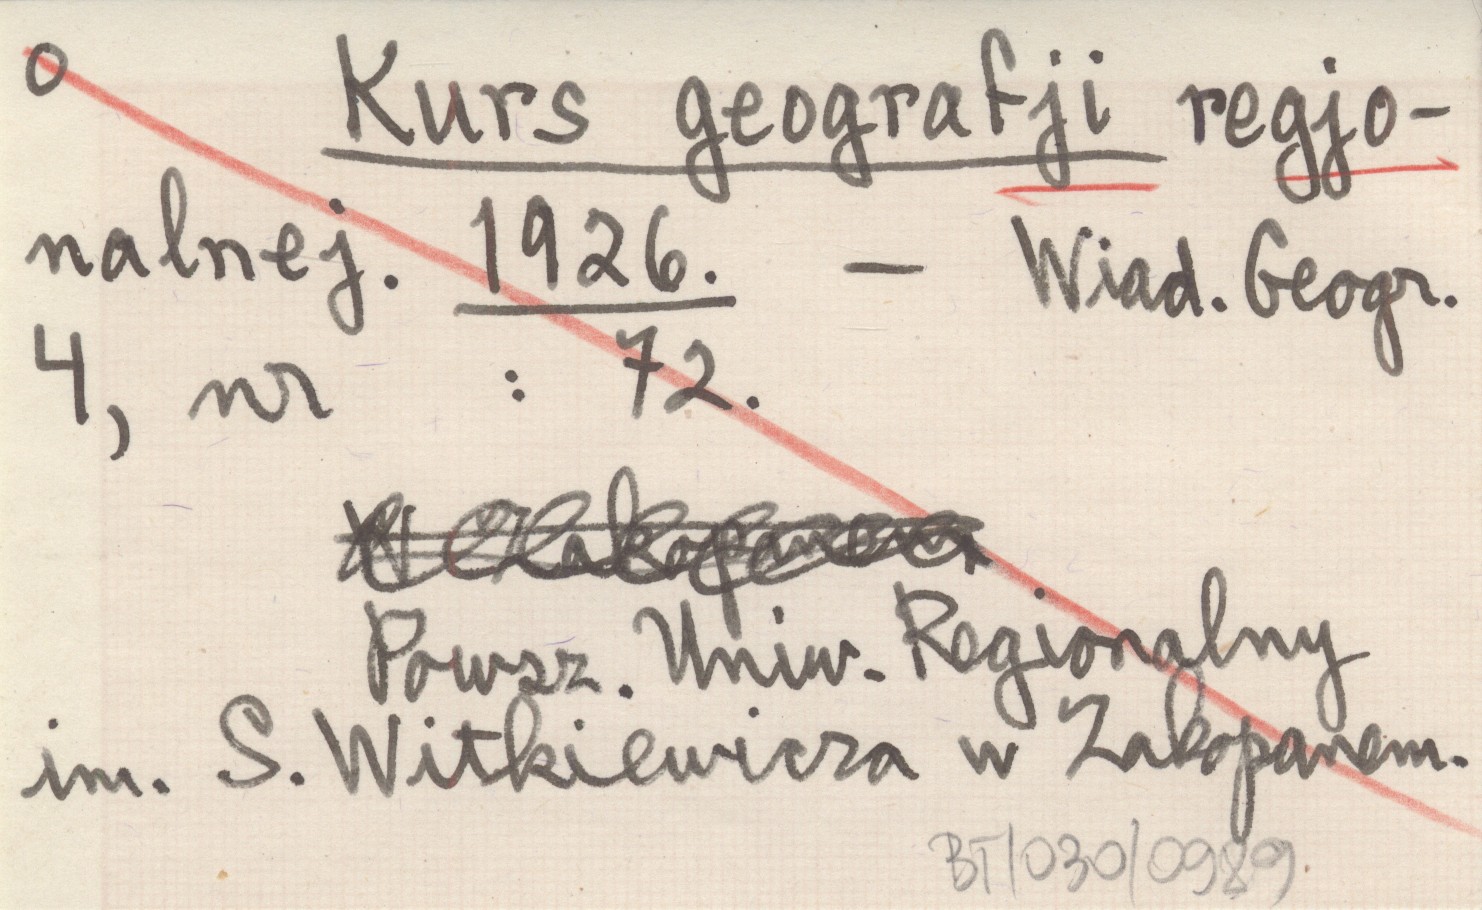 O Kurs geografji regjo-
nalnej. 1926. – Wiad. Geogr.
4, nr : 72.
Powsz. Uniw. Regionalny
im. S. Witkiewicza w Zakopanem.
BT/030/0989